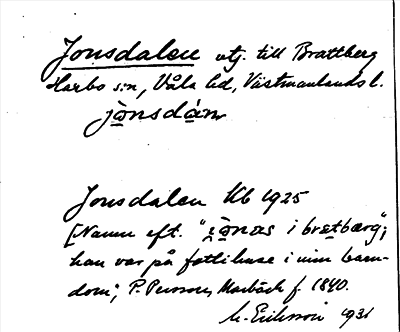 Jonsdalen utj. till Brattberg
Harbo s:n, Våla hd, Västmanlands l.
jònsdán
Jonsdalen Kb 1925
[Namn eft. "jònas i bratbærg";
han var på fattihuse i min barn-
dom; P. Persson, Morbäck f. 1840.
M. Eriksson 1931